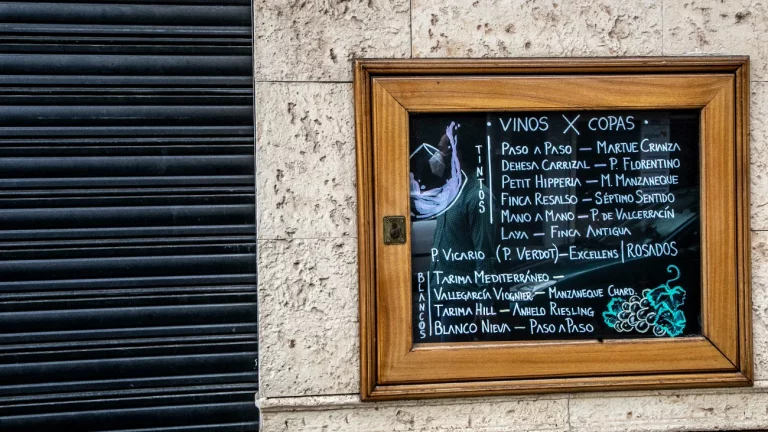 · VINOS X COPAS ·
TINTOS
PASO A PASO — MARTUE CRIANZA
DEHESA CARRIZAL — P. FLORENTINO
PETIT HIPPERIA — M. MANZANEQUE
FINCA RESALSO — SÉPTIMO SENTIDO
MANO A MANO — P. DE VALCERRACÍN
LAYA — FINCA ANTIGUA
P. VICARIO (P. VERDOT) — EXCELLENS | ROSADOS
BLANCOS
TARIMA MEDITERRÁNEO —
VALLEGARCÍA VIOGNIER — MANZANEQUE CHARD.
TARIMA HILL — ANHELO RIESLING
BLANCO NIEVA — PASO A PASO